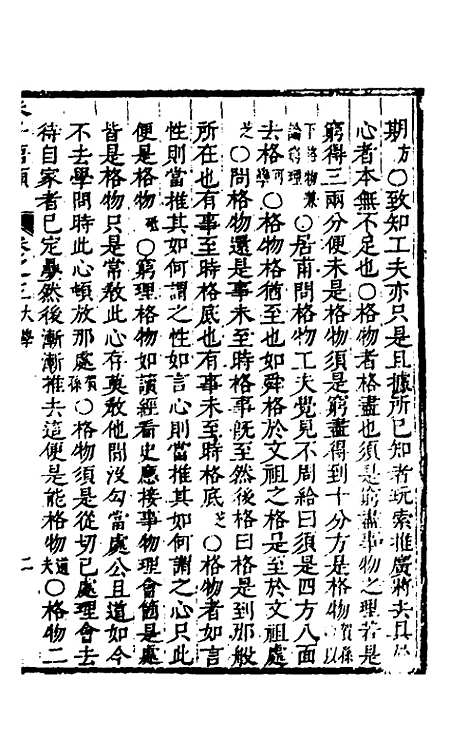 期方○致知工夫亦只是且據所已知者玩索推廣將去具於
心者本無不足也○格物者格盡也須是窮盡事物之理若是
窮得三兩分便未是格物須是窮盡得到十分方是格物賀孫以
下格物兼論窮理○居甫問格物工夫覺見不周給曰須是四方八面
去格可學○格物格猶至也如舜格於文祖之格是至於文祖處
芝○問格物還是事未至時格事既至然後格曰格是到那般
所在也有事至時格底也有事未至時格底芝○格物者如言
性則當推其如何謂之性如言心則當推其如何謂之心只此
便是格物砥○窮理格物如讀經看史應接事物理會箇是處
皆是格物只是常教此心存莫教他閒沒勾當處公且道如今
不去學問時此心頓放那處賀孫○格物須是從切己處理會去
待自家者已定疊然後漸漸推去這便是能格物道夫○格物二
大學
二